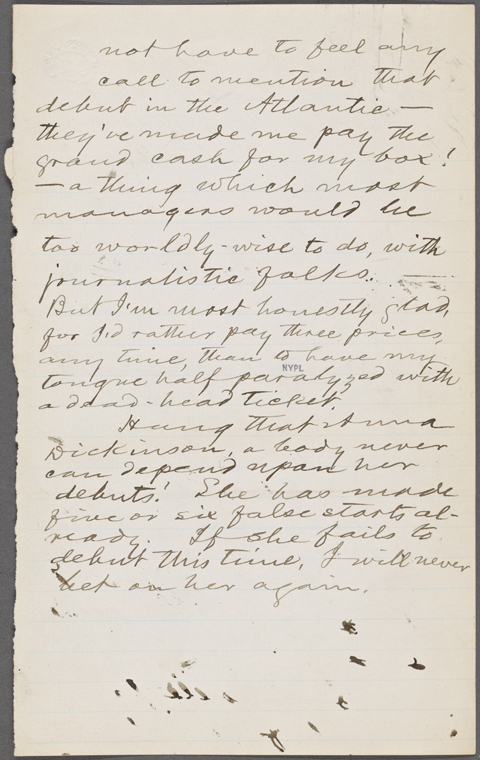 not have to feel any
call to mention that
debut in the Atlantic —
they've made me pay the
grand cash for my box!
— a thing which most
managers would be
too worldly-wise to do, with
journalistic folks.
But I'm most honestly glad,
for I'd rather pay three prices,
any time, than to have my
NYPL
tongue half paralyzed with
a dead-head ticket.
Hang that Anna
Dickinson, a body never
can depend upon her
debuts! She has made
five or six false starts al-
ready. If she fails to
debut this time, I will never
bet on her again.